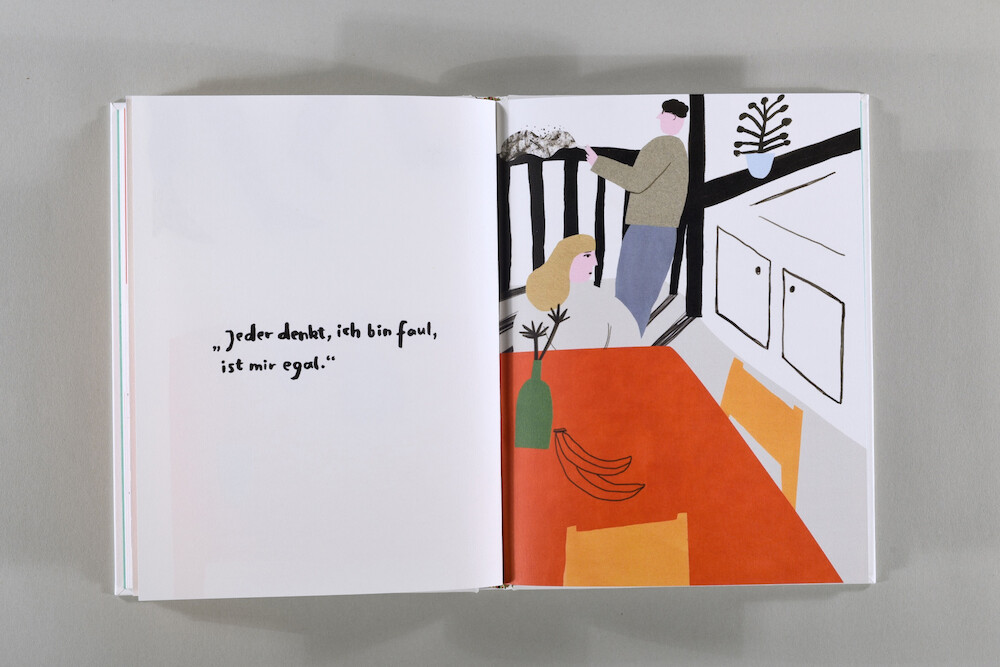 „Jeder denkt, ich bin faul,
ist mir egal.“